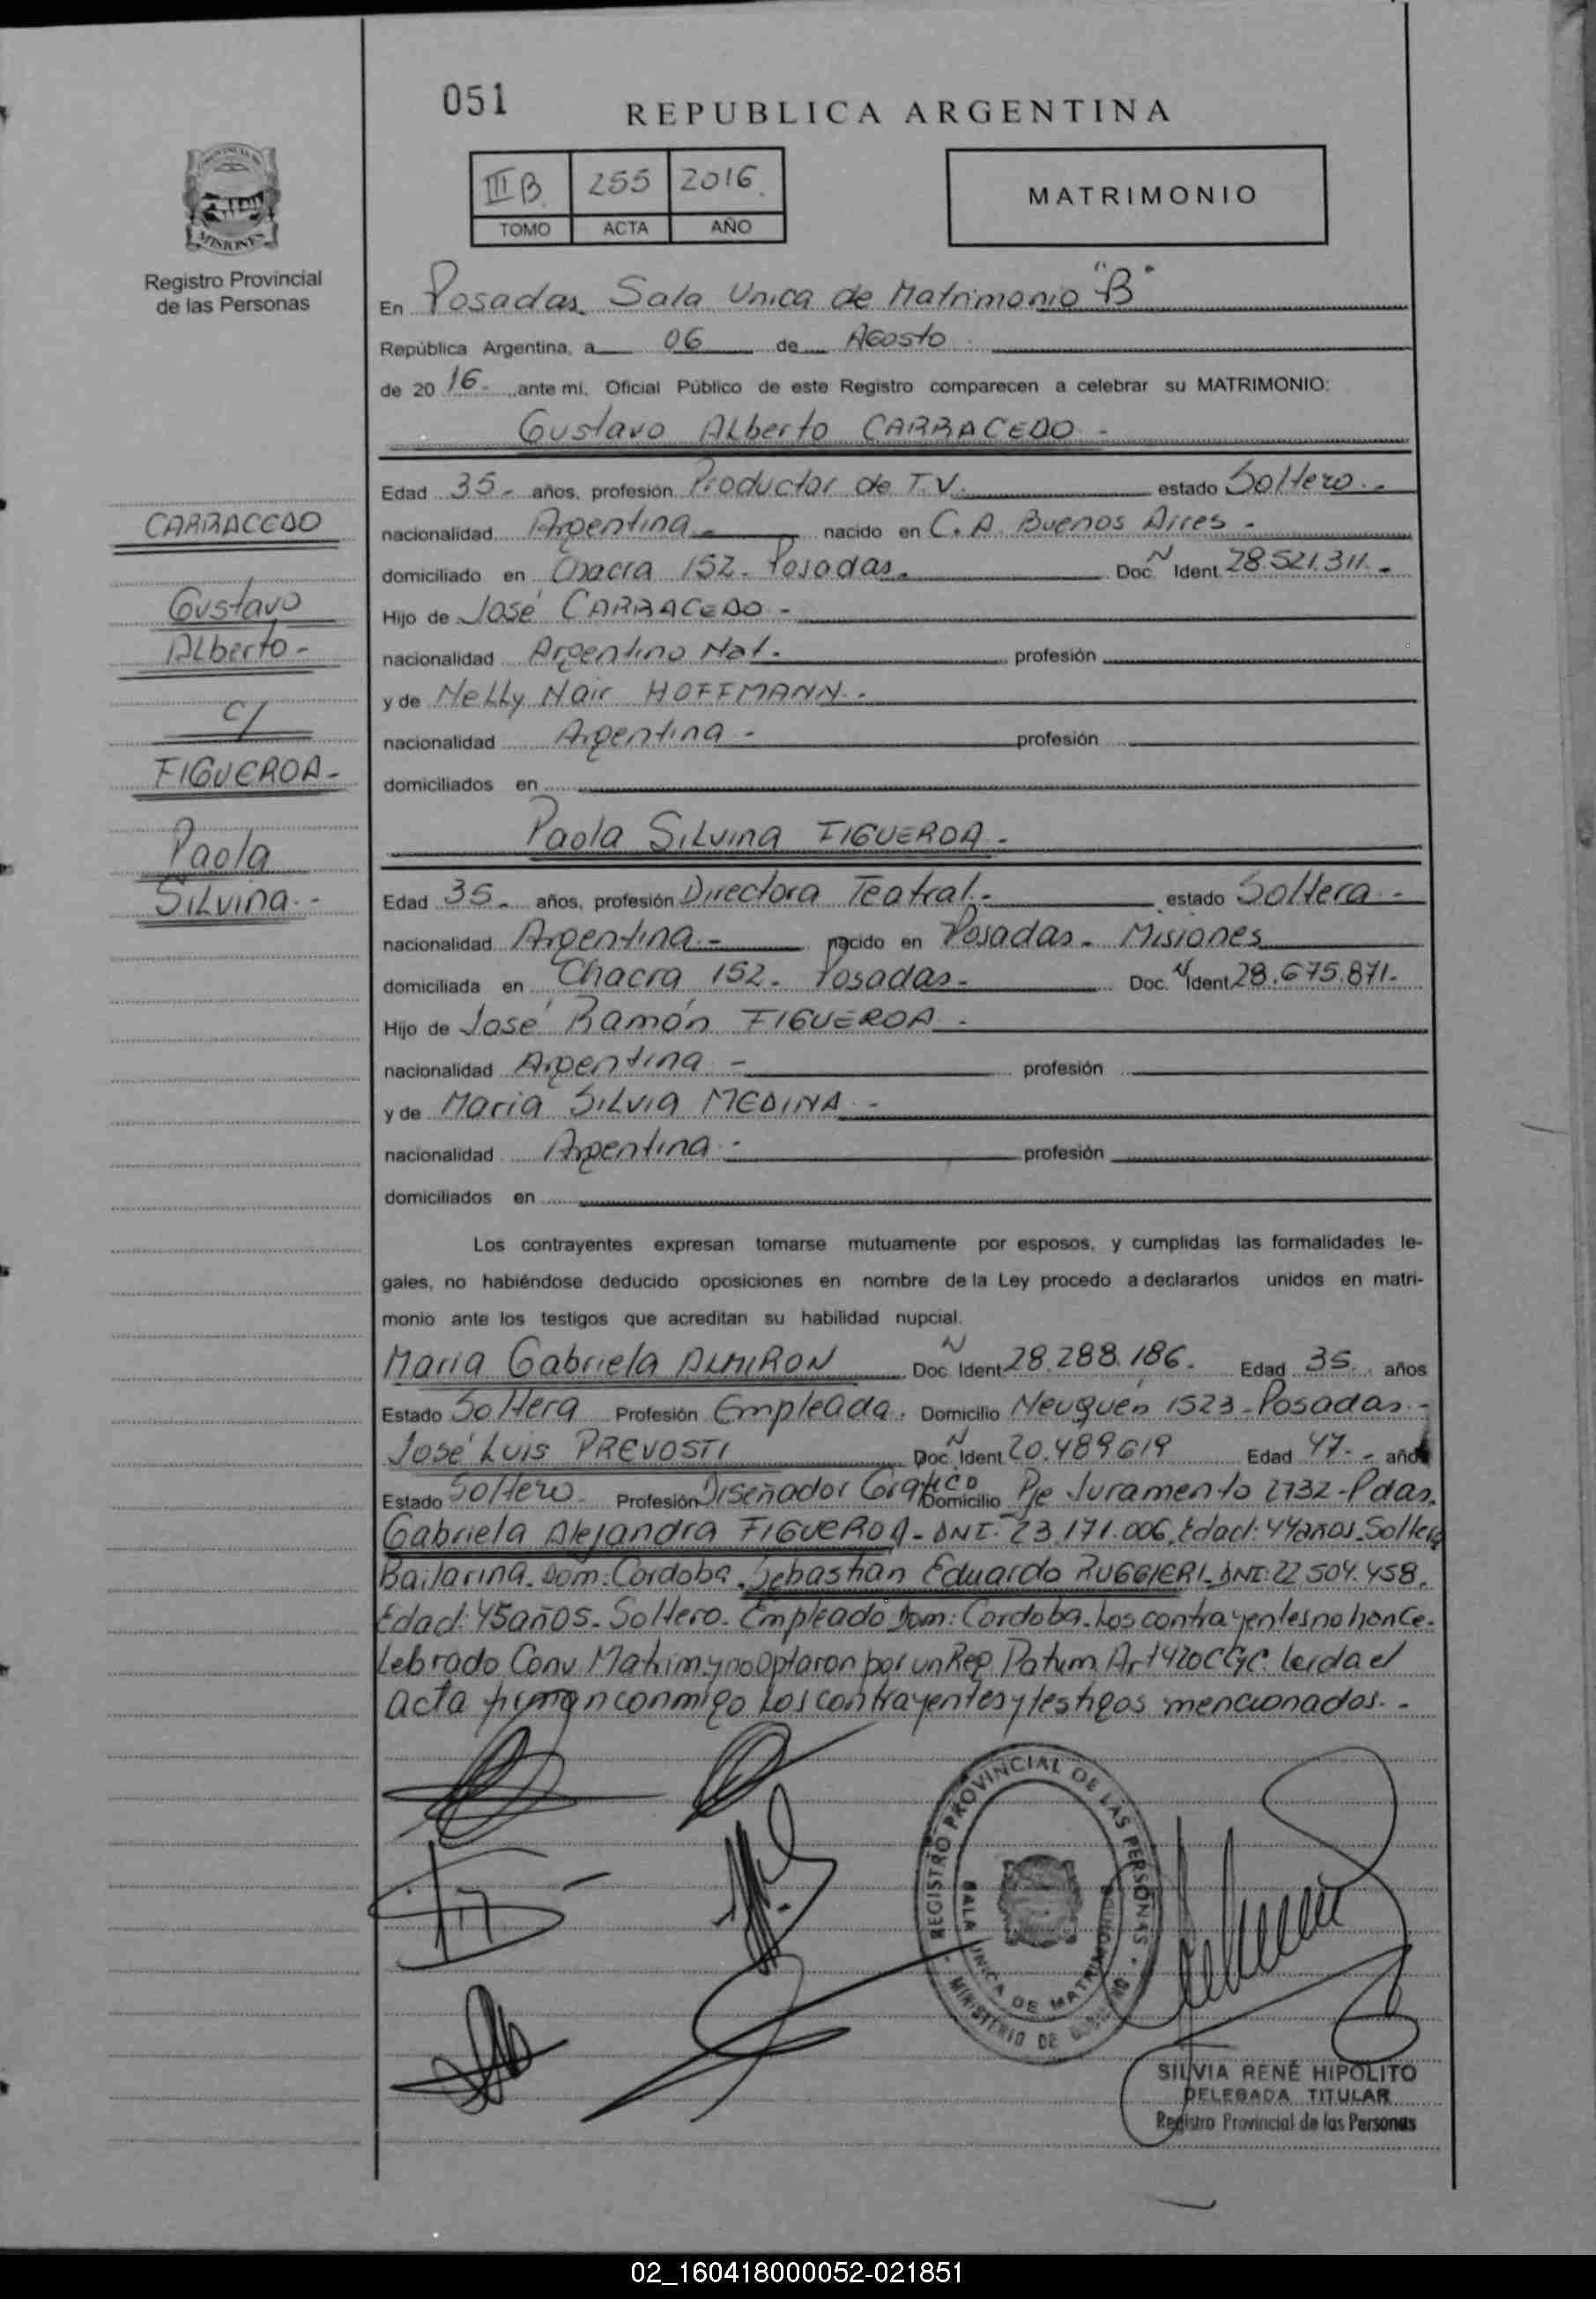 051
REPUBLICA ARGENTINA
III B. 255 2016.
TOMO ACTA AÑO
MATRIMONIO
MISIONES
Registro Provincial
de las Personas
En Posadas Sala Unica de Matrimonio "B"
República Argentina, a 06 de Agosto
de 2016. ante mi, Oficial Público de este Registro comparecen a celebrar su MATRIMONIO:
Gustavo Alberto CARRACEDO -
Edad 35- años, profesión Productor de T.V. estado Soltero.-
CARRACEDO
nacionalidad Argentina - nacido en C.A. Buenos Aires -
domiciliado en Chacra 152- Posadas. Doc N Ident 28.521.311.-
Gustavo
Hijo de José CARRACEDO -
Alberto-
nacionalidad Argentino Nat. profesión
y de Nelly Nair HOFFMANN.-
c/
nacionalidad Argentina - profesión
FIGUEROA-
domiciliados en
Paola Silvina FIGUEROA.-
Paola
Silvina.-
Edad 35- años, profesión Directora Teatral.- estado Soltera.-
nacionalidad Argentina.- nacido en Posadas- Misiones
domiciliada en Chacra 152- Posadas- Doc. N Ident 28.675.871-
Hijo de José Ramón FIGUEROA -
nacionalidad Argentina - profesión
y de Maria Silvia MEDINA.-
nacionalidad Argentina.- profesión
domiciliados en
Los contrayentes expresan tomarse mutuamente por esposos, y cumplidas las formalidades le-
gales, no habiéndose deducido oposiciones en nombre de la Ley procedo a declararlos unidos en matri-
monio ante los testigos que acreditan su habilidad nupcial.
Maria Gabriela ALMIRON Doc. N Ident 28.288.186. Edad 35. años
Estado Soltera Profesión Empleada. Domicilio Neuquén 1523-Posadas.-
José Luis PREVOSTI Doc N Ident 20.489619 Edad 47.- años
Estado Soltero. Profesión Diseñador Grafico Domicilio Pje Juramento 2732-Pdas.
Gabriela Alejandra FIGUEROA- DNI: 23.171.006, Edad: 44años. Soltera
Bailarina. Dom: Cordoba. Sebastian Eduardo RUGGIERI- DNI: 22 504.458.
Edad: 45años. Soltero. Empleado Dom: Cordoba. Los contrayentes no han Ce-
lebrado Conv Matrim y no Optaron por un Reg Patrim Art 420CCyC. leida el
acta firman conmigo los contrayentes y testigos mencionados.-
REGISTRO PROVINCIAL DE LAS PERSONAS
SALA UNICA DE MATRIMONIO
MINISTERIO DE GOBIERNO
SILVIA RENÉ HIPÓLITO
DELEGADA TITULAR
Registro Provincial de las Personas
02_160418000052-021851